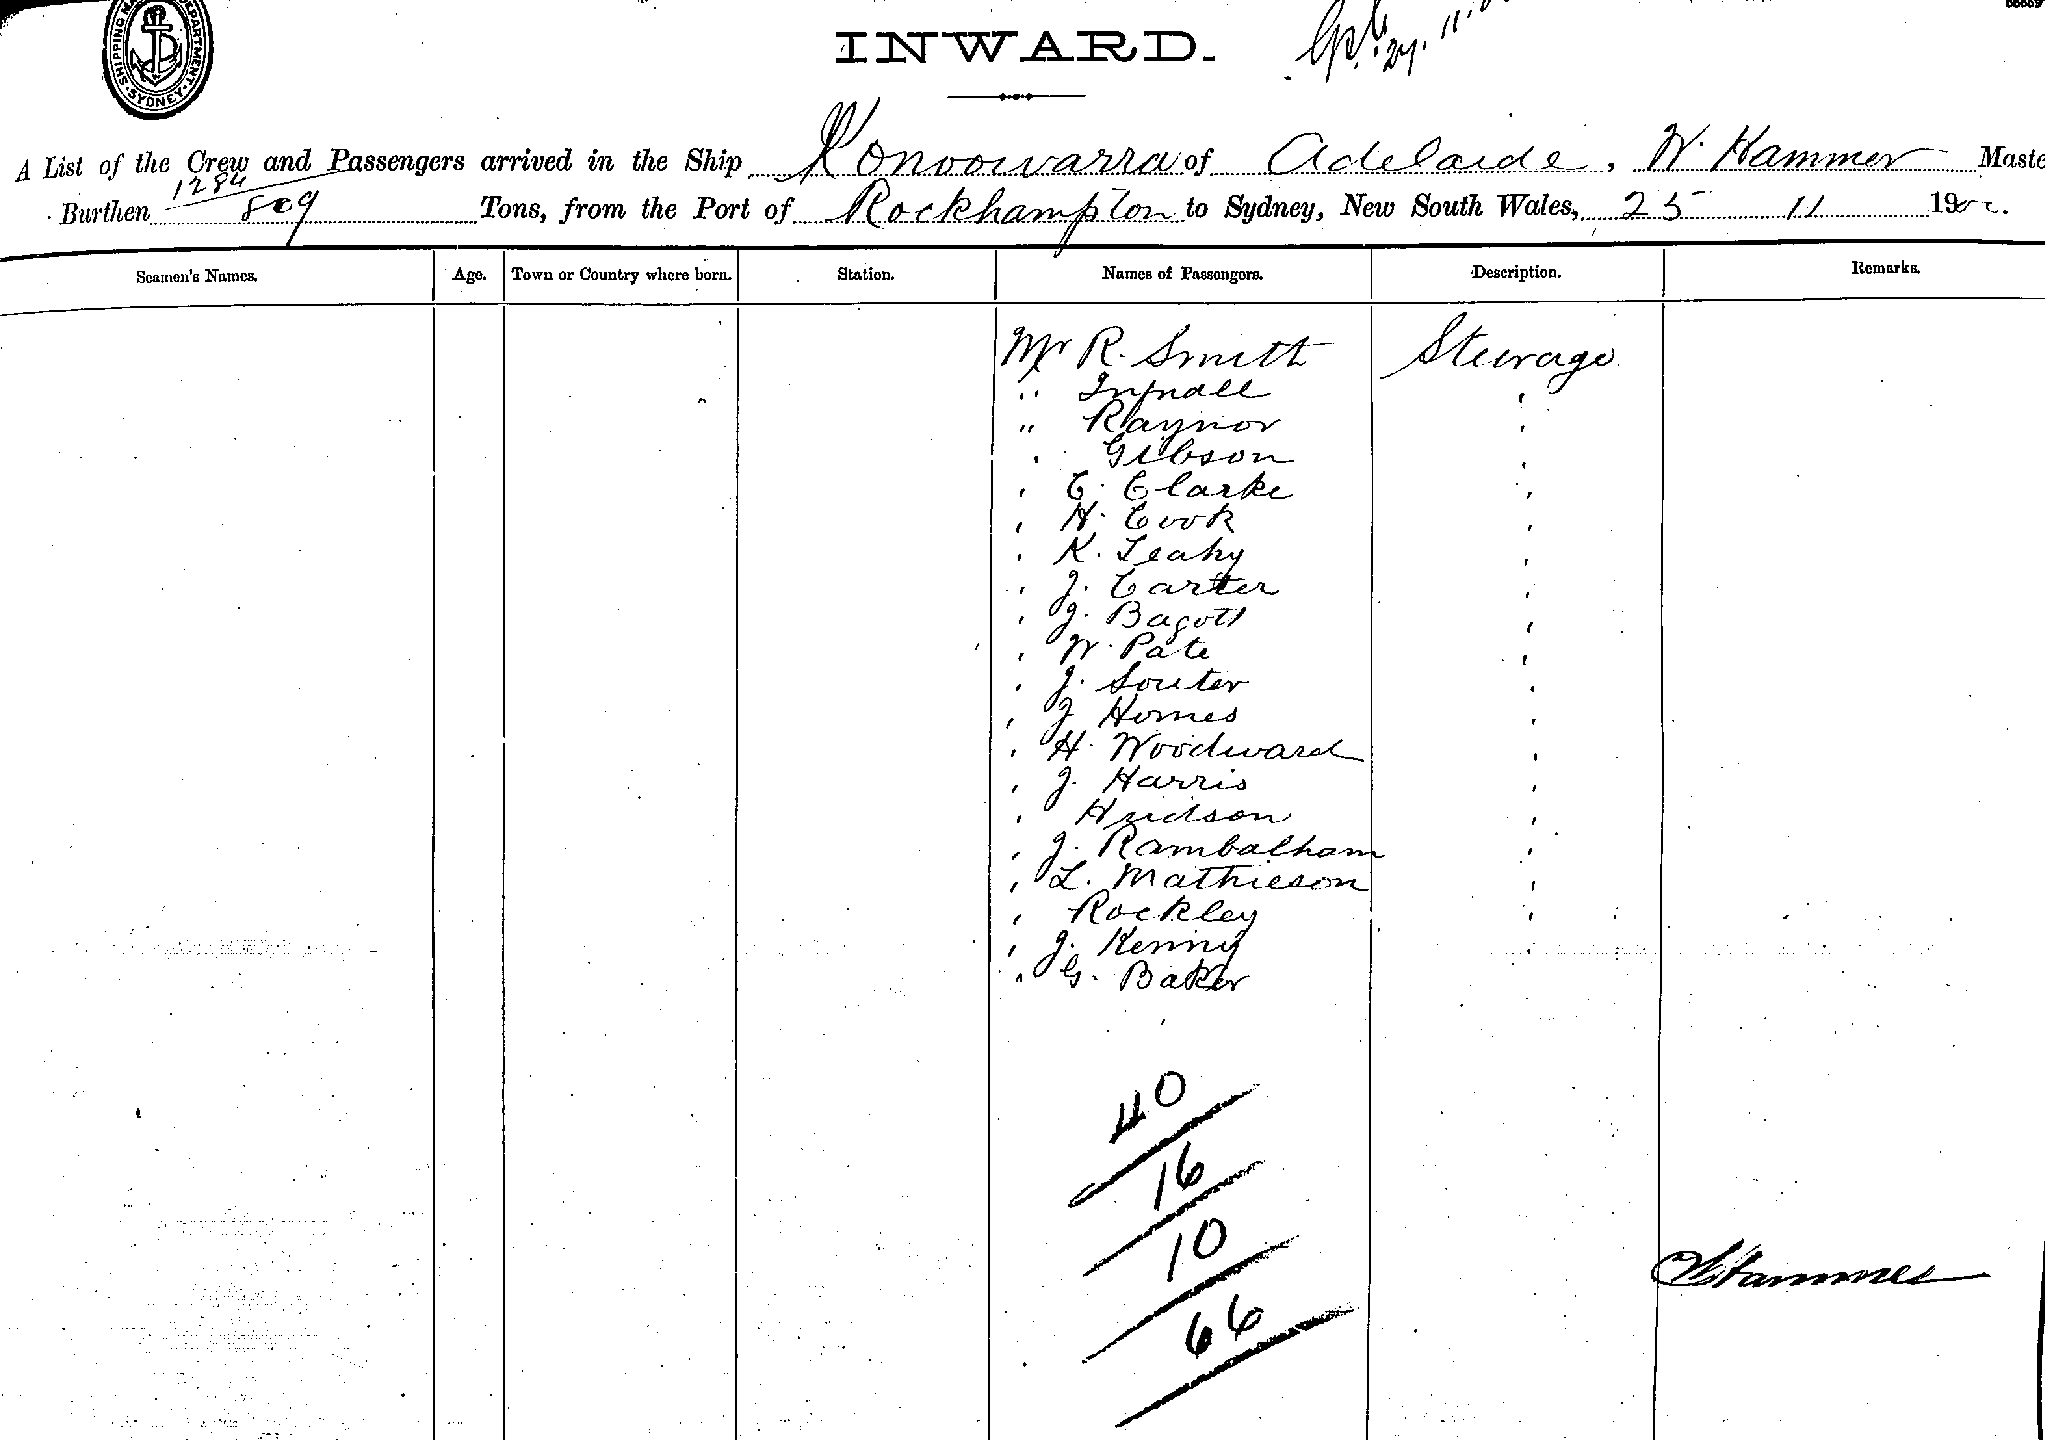 SHIPPING MA DEPARTMENT. SYDNEY.
INWARD.
A List of the Crew and Passengers arrived in the Ship Konoowarra of Adelaide, W. Hammer Maste
1284
Burthen 809 Tons, from the Port of Rockhampton to Sydney, New South Wales, 25 11 190
Seamen's Names. Age. Town or Country where born. Station. Names of Passengers. Description. Remarks.
Mr R. Smith Steerage
" Tyndall '
" Raynor '
' Gibson '
' C. Clarke '
' H. Cook '
' K. Leahy '
' J. Carter '
' J. Bagott '
' W. Pate '
' J. Souter '
' J Homes '
' H. Woodward '
' J. Harris '
' Hudson '
' J. Rambalham '
' L. Mathieson '
' Rockley '
' J. Kenny '
" G. Baker
40
16
10
66
WHammer